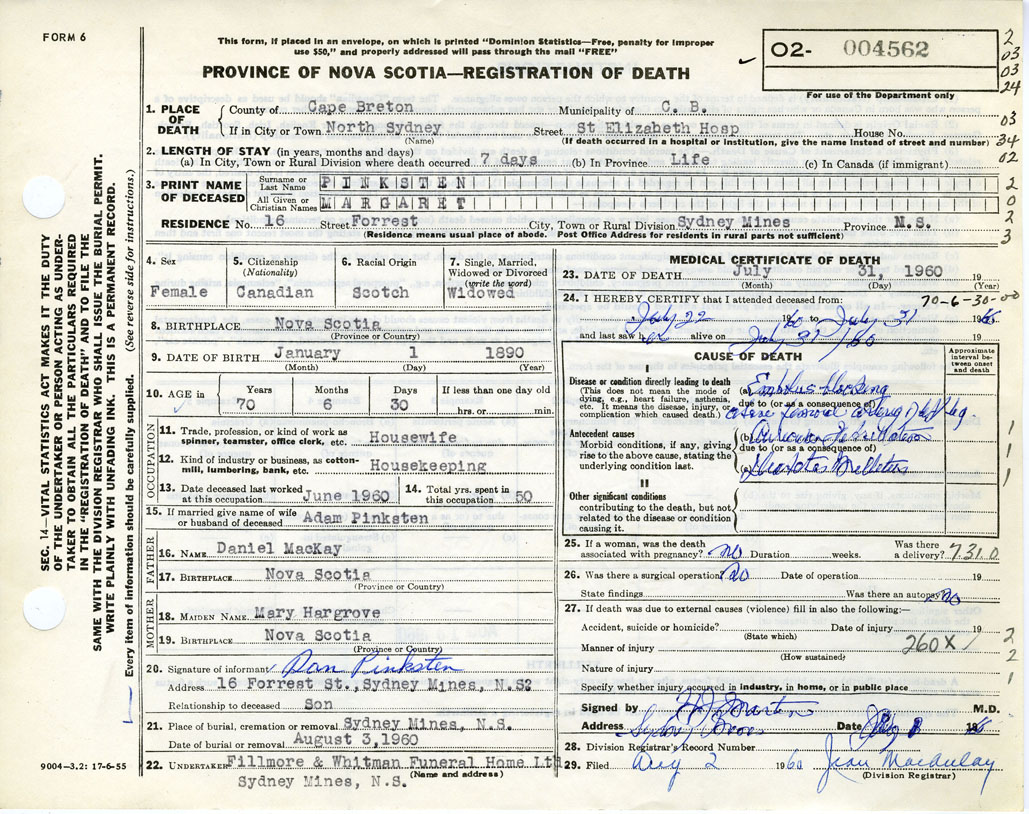 FORM 6
This form, if placed in an envelope, on which is printed "Dominion Statistics—Free, penalty for improper
use $50," and properly addressed will pass through the mail "FREE"
PROVINCE OF NOVA SCOTIA—REGISTRATION OF DEATH
02- 004562
For use of the Department only
2
03
03
24
03
34
02
2
0
2
3
1. PLACE OF DEATH
County of Cape Breton Municipality of C. B.
If in City or Town North Sydney Street St Elizabeth Hosp House No.
(Name) (If death occurred in a hospital or institution, give the name instead of street and number)
2. LENGTH OF STAY (in years, months and days)
(a) In City, Town or Rural Division where death occurred 7 days (b) In Province Life (c) In Canada (if immigrant)
3. PRINT NAME OF DECEASED
Surname or Last Name PINKSTEN
All Given or Christian Names MARGARET
RESIDENCE No. 16 Street Forrest City, Town or Rural Division Sydney Mines Province N.S.
(Residence means usual place of abode. Post Office Address for residents in rural parts not sufficient)
4. Sex
Female
5. Citizenship
(Nationality)
Canadian
6. Racial Origin
Scotch
7. Single, Married,
Widowed or Divorced
(write the word)
Widowed
8. BIRTHPLACE Nova Scotia
(Province or Country)
9. DATE OF BIRTH January 1 1890
(Month) (Day) (Year)
10. AGE in
Years Months Days If less than one day old
70 6 30 hrs. or min.
OCCUPATION
11. Trade, profession, or kind of work as
spinner, teamster, office clerk, etc. Housewife
12. Kind of industry or business, as cotton-
mill, lumbering, bank, etc. Housekeeping
13. Date deceased last worked
at this occupation June 1960
14. Total yrs. spent in
this occupation 50
15. If married give name of wife
or husband of deceased Adam Pinksten
FATHER
16. NAME Daniel MacKay
17. BIRTHPLACE Nova Scotia
(Province or Country)
MOTHER
18. MAIDEN NAME Mary Hargrove
19. BIRTHPLACE Nova Scotia
(Province or Country)
20. Signature of informant Dan Pinksten
Address 16 Forrest St., Sydney Mines, N.S?
Relationship to deceased Son
21. Place of burial, cremation or removal Sydney Mines, N.S.
Date of burial or removal August 3,1960
22. UNDERTAKER Fillmore & Whitman Funeral Home Ltd
(Name and address)
Sydney Mines, N.S.
9004—3.2: 17-6-55
MEDICAL CERTIFICATE OF DEATH
23. DATE OF DEATH July 31, 1960 19
(Month) (Day) (Year)
24. I HEREBY CERTIFY that I attended deceased from: 70-6-30-00
July 22 1960 to July 31 19
and last saw her alive on July 31/60
CAUSE OF DEATH
Approximate interval between onset and death
I
Disease or condition directly leading to death
(This does not mean the mode of
dying, e.g., heart failure, asthenia,
etc. It means the disease, injury, or
complication which caused death.)
(a)
due to (or as a consequence of)
Antecedent causes
Morbid conditions, if any, giving
rise to the above cause, stating the
underlying condition last.
(b) Auricular Fibrillation
due to (or as a consequence of)
(c) Diabetes Mellitus
1
1
1
II
Other significant conditions
contributing to the death, but not
related to the disease or condition
causing it.
25. If a woman, was the death
associated with pregnancy? No Duration weeks.
Was there
a delivery? 731.0
26. Was there a surgical operation? No Date of operation 19
State findings Was there an autopsy? No
27. If death was due to external causes (violence) fill in also the following:—
Accident, suicide or homicide? Date of injury 19
(State which)
Manner of injury 260X
(How sustained)
2
2
1
Nature of injury
Specify whether injury occurred in industry, in home, or in public place
Signed by M.D.
Address Sydney Mines Date
28. Division Registrar's Record Number
29. Filed Aug 2 1960 Jean Macaulay
(Division Registrar)
SEC. 14—VITAL STATISTICS ACT MAKES IT THE DUTY
OF THE UNDERTAKER OR PERSON ACTING AS UNDER-
TAKER TO OBTAIN ALL THE PARTICULARS REQUIRED
IN THE "REGISTRATION OF DEATH" AND TO FILE THE
SAME WITH THE DIVISION REGISTRAR WHO SHALL ISSUE THE BURIAL PERMIT.
WRITE PLAINLY WITH UNFADING INK. THIS IS A PERMANENT RECORD.
Every item of information should be carefully supplied. (See reverse side for instructions.)